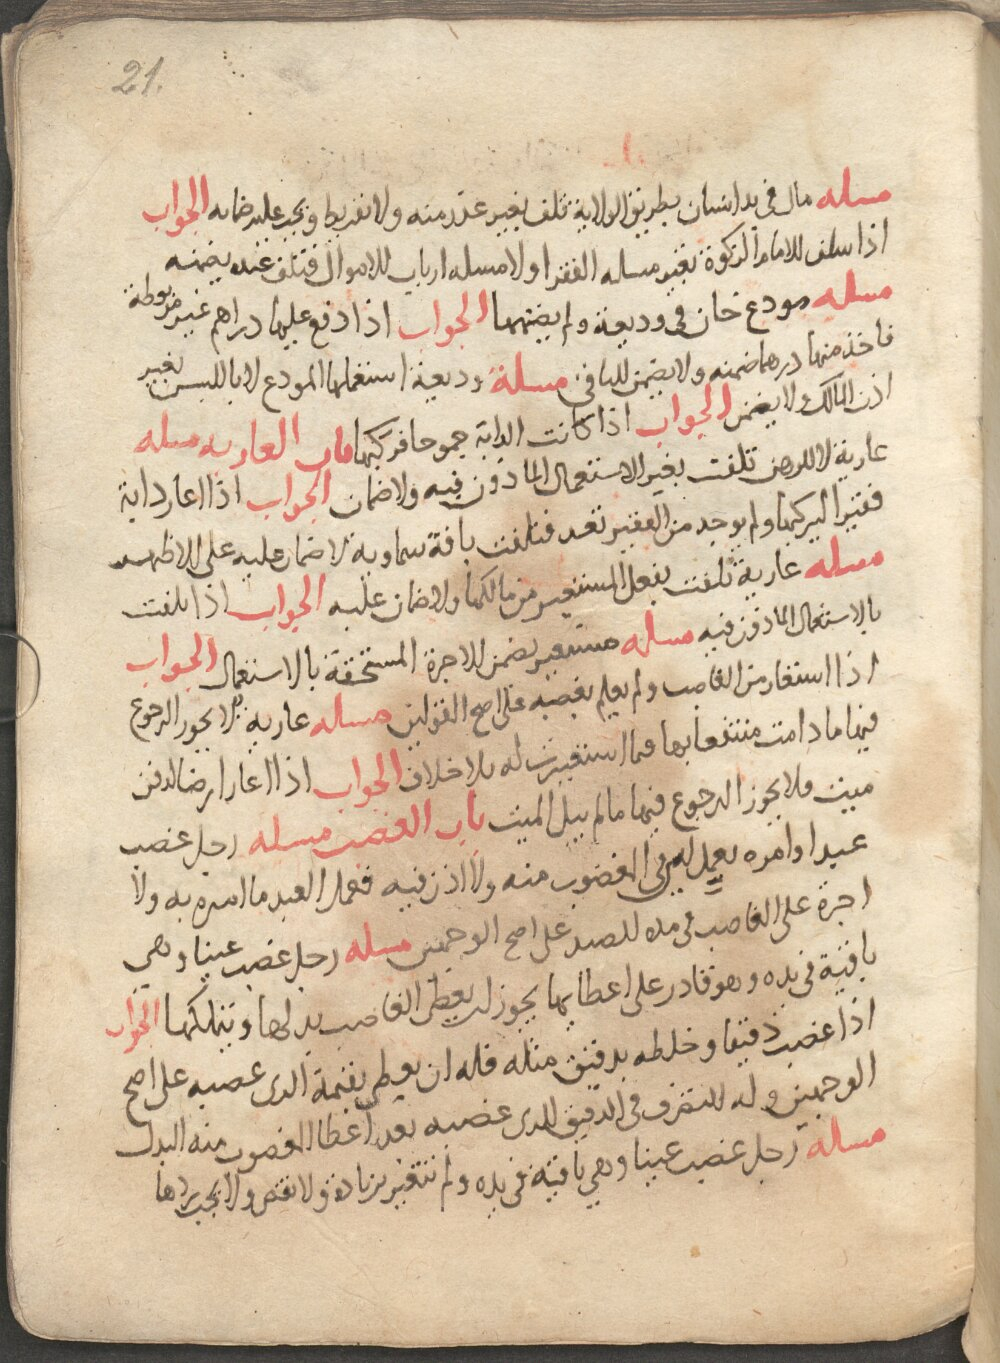 21.
مسله مال فى يد انسان بطريق الولاية تلف بغير عذر منه ولا تفريط وتجب عليه ضمانه الجواب
اذا سلف للامام الزكوة بغير مسله الفقرا ولا مسله ارباب الاموال فتلف عنده يضمنه
مسله مودع خان فى وديعة ولم يضمنها الجواب اذا دفع عليها دراهم غير مربوطة
فاخذ منها درهما ضمنه ولا يضمن الباقى مسلة وديعة استعملها المودع لا باللبس بغير
اذن المالك ولا يضمن الجواب اذا كانت الدابة جموحا فركبها باب العاريه مسله
عارية لا للرهن تلفت بغير الاستعمال الماذون فيه ولا ضمان الجواب اذا اعار دابة
فقيرا ليركبها ولم يوجد من الفقير تعد فتلفت بافة سماوية لا ضمان عليه على الاظهر
مسله عارية تلفت بفعل المستعير من مالكها ولا ضمان عليه الجواب اذا تلفت
بالاستعمال الماذون فيه مسله مستعير يضمن الاجرة المستحقة بالاستعمال الجواب
اذا استعار من الغاصب ولم يعلم بغصبه على اصح القولين مسله عارية لا يجوز الرجوع
فيها ما دامت منتفعا بها فما استعيرت له بلا خلاف الجواب اذا اعار ارضا لدفن
ميت فلا يجوز الرجوع فيها ما لم يبل الميت باب الغصب مسله رجل غصب
عبدا وامره بعمل ليس فى المغضوب منه ولا اذن فيه فعمل العبد ما امره به ولا
اجرة على الغاصب فى مده للصيد على اصح الوجهين مسله رجل غصب عينا وهي
باقية فى يده وهو قادر على اعطايها يجوز ان يعطى الغاصب بدلها ويتملكها الجواب
اذا غصب دقيقا وخلطه بدقيق مثله فله ان يعطى بقيمة الدى غصبه على اصح
الوجهين وله التصرف فى الدقيق الدى غصبه بعد اعطا المغصوب منه البدل
مسله رجل غصب عينا وهي باقية فى يده ولم تتغير بزيادة ولا نقص ولا يجب ردها